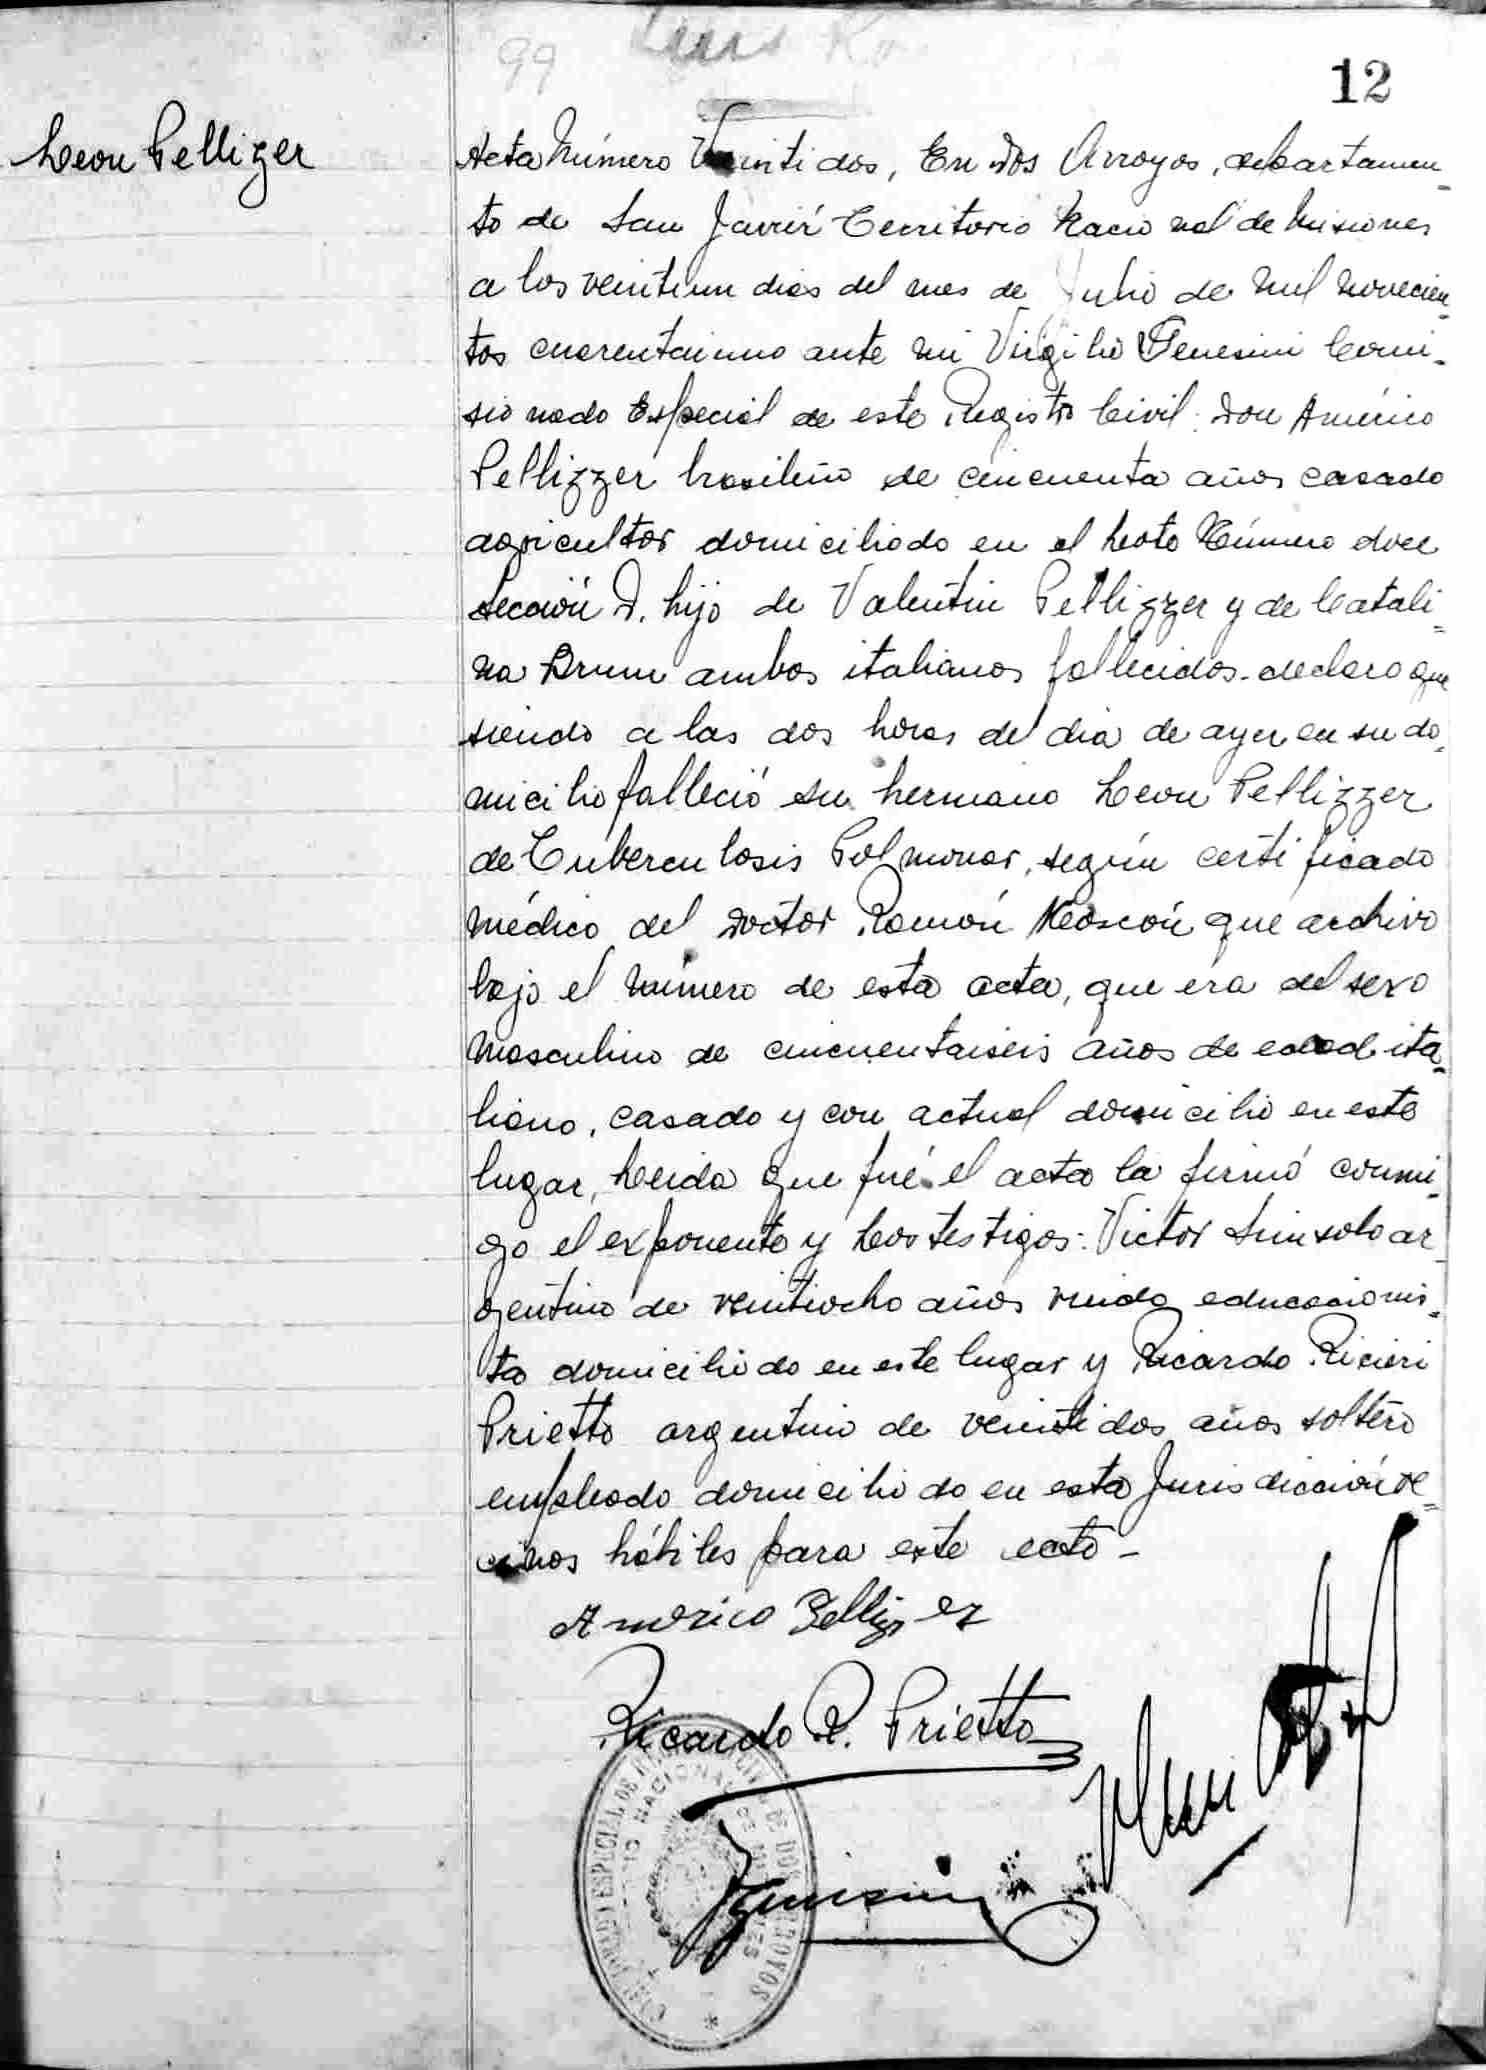 99
12
Leon Pellizer
Acta Número Veintidos, En Dos Arroyos, departamen-
to de San Javier Territorio Nacional de Misiones
a los veintiun dias del mes de Julio de mil novecien-
tos cuarentaiuno ante mi Virgilio Genesini Comi-
sionado Especial de este Registro Civil: Don Américo
Pellizzer brasileño de cincuenta años casado
agricultor domiciliado en el Lote Número doce
Sección D. hijo de Valentin Pellizzer y de Catali-
na Brun ambos italianos fallecidos. declaro que
siendo a las dos horas del dia de ayer en su do-
micilio falleció su hermano Leon Pellizzer
de Tuberculosis Polmonar, según certificado
médico del Doctor Ramón que archivo
bajo el número de esta acta, que era del sexo
masculino de cincuentaiseis años de edad ita-
liano, casado y con actual domicilio en este
lugar, Leida que fué el acta la firmó conmi-
go el exponente y los testigos: Victor ar-
gentino de veintiocho años viudo educacionis-
ta domiciliado en este lugar y Ricardo Ricieri
Prietto argentino de veintidos años soltero
empleado domiciliado en esta Jurisdicción ve-
cinos hábiles para este acto -
Americo Pellizzer
Ricardo R. Prietto
Genesini